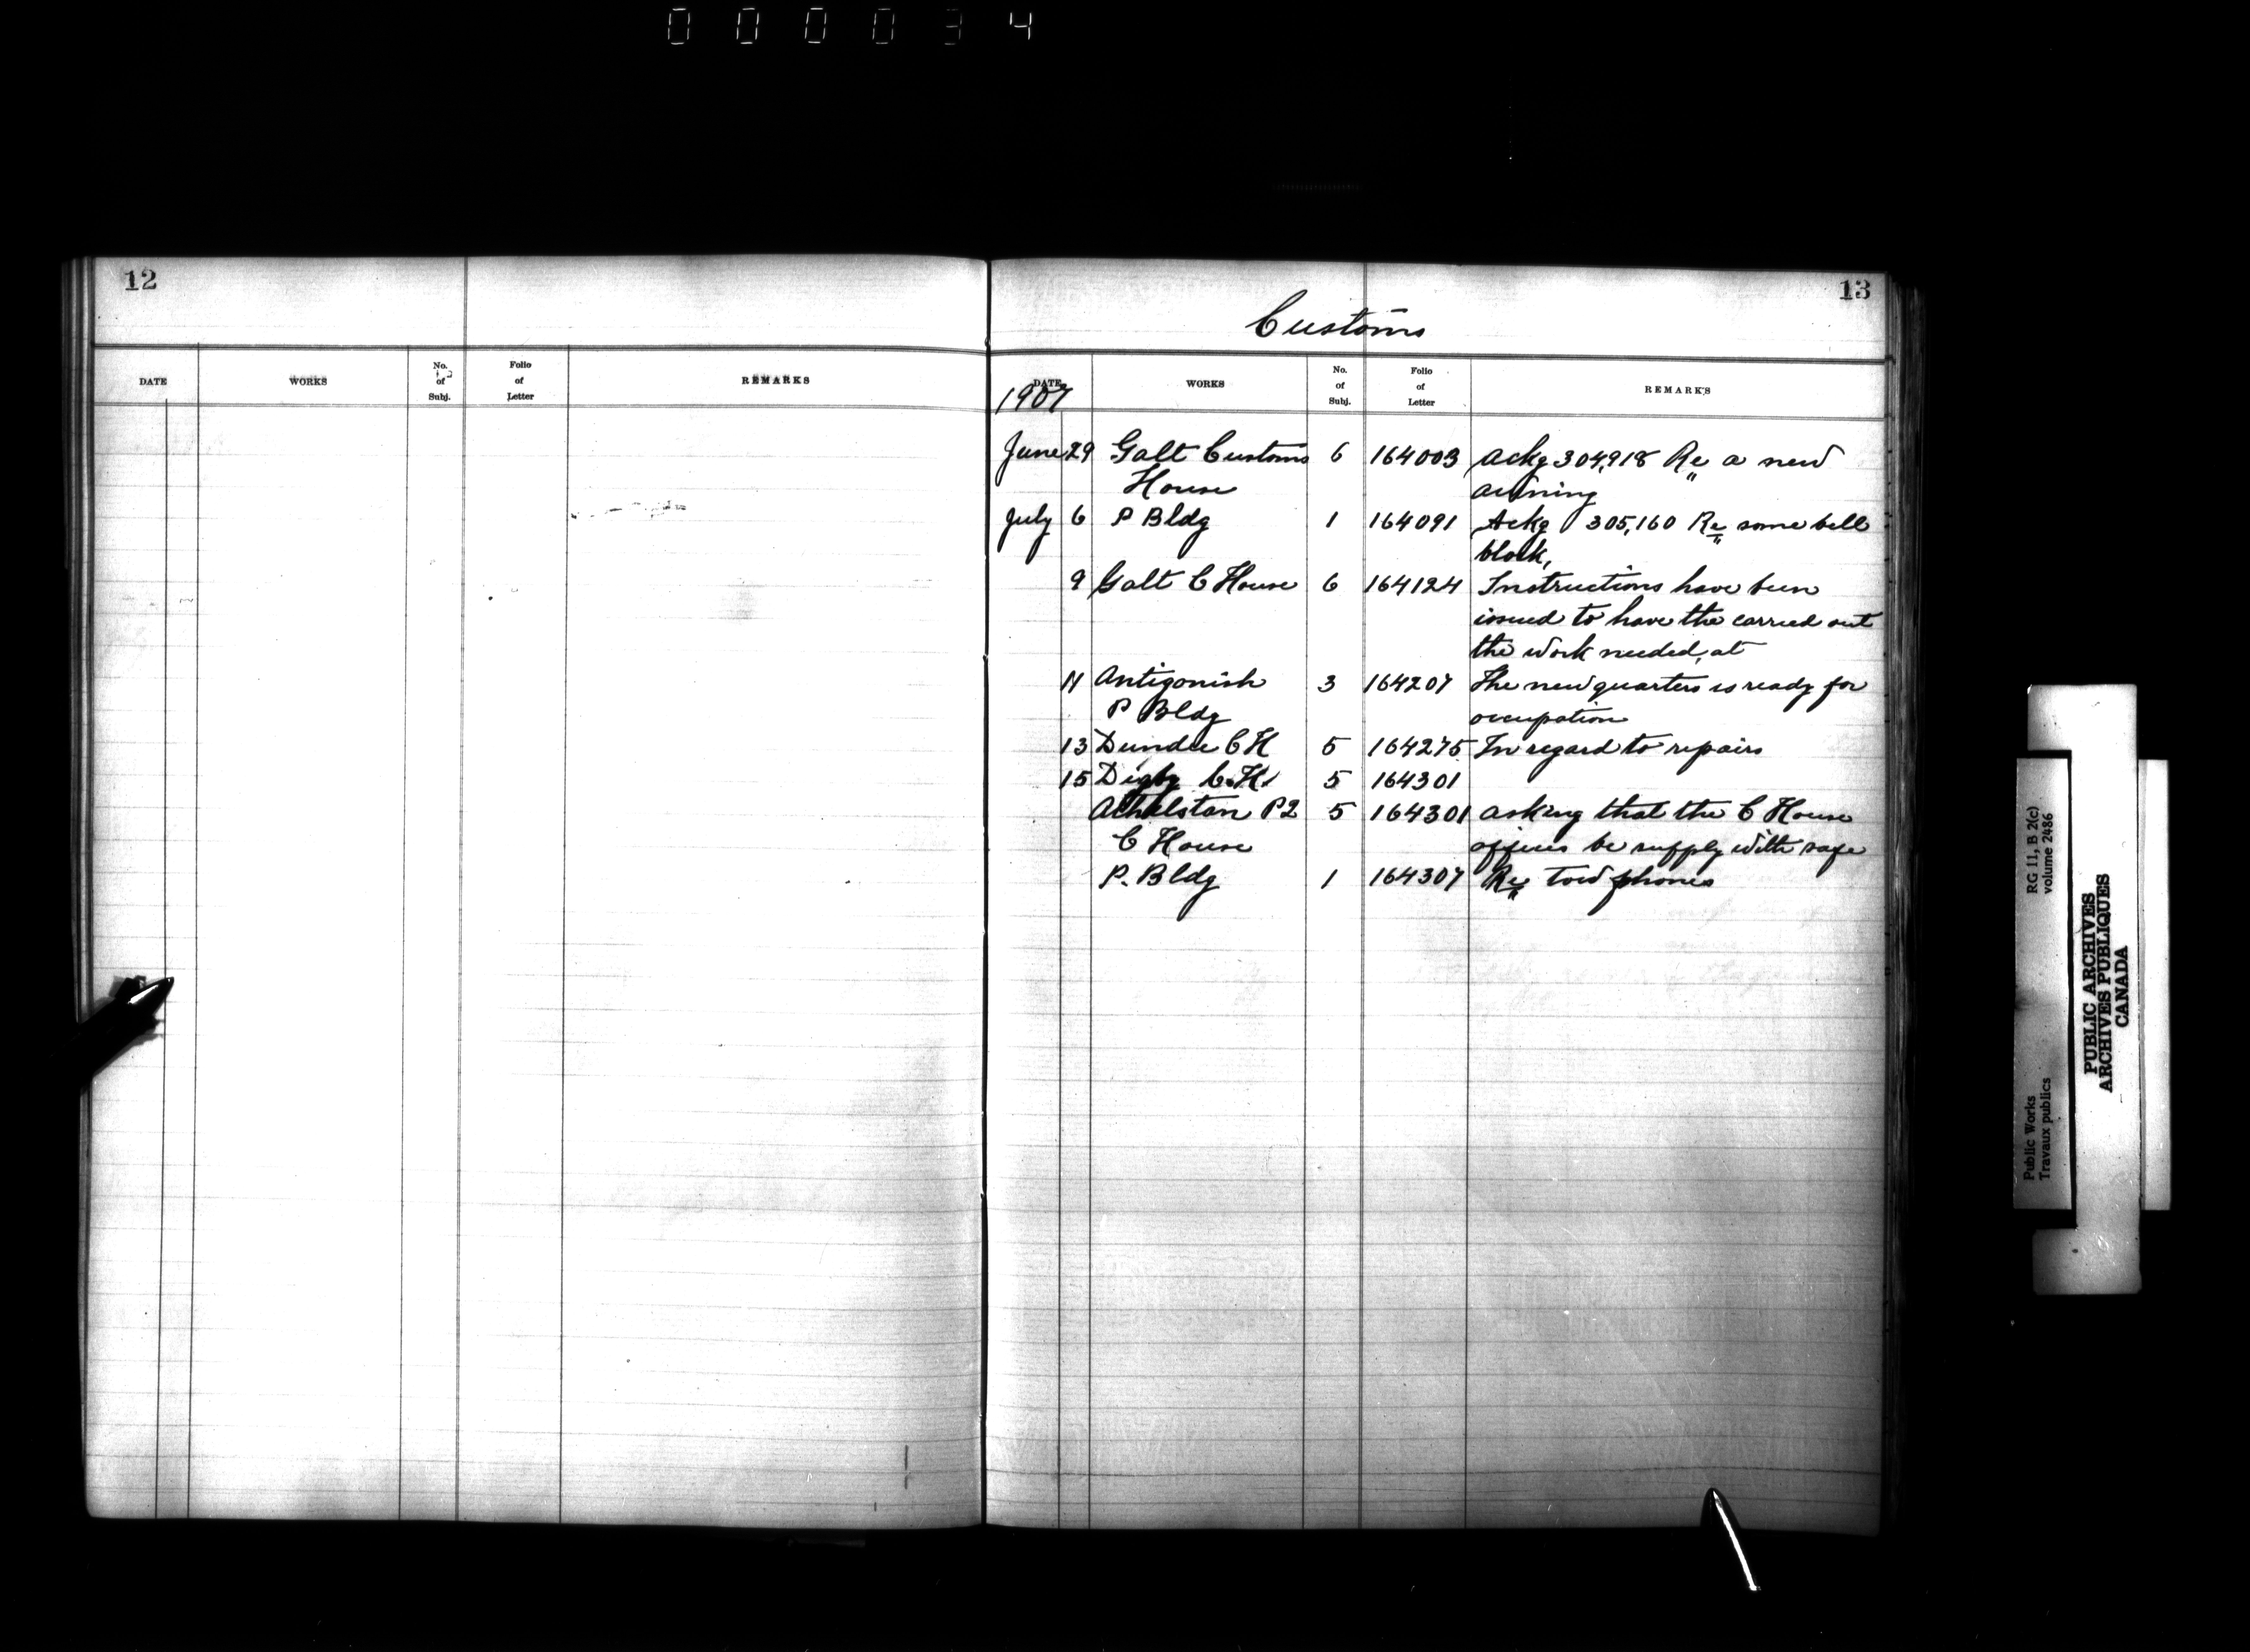 000034
12
DATE WORKS No. of Subj. Folio of Letter REMARKS
13
Customs
DATE WORKS No. of Subj. Folio of Letter REMARKS
1907
June 29 Galt Customs 6 164003 Ackg 304,918 Re a new
House awning
July 6 P Bldg 1 164091 Ackg 305,160 Re some bell
block,
9 Galt C House 6 164124 Instructions have been
issued to have the carried out
the work needed, at
11 Antigonish 3 164207 The new quarters is ready for
P Bldg occupation
13 Dundee C H 5 164275 In regard to repairs
15 Digby C. H. 5 164301
Athelstan P2 5 164301 asking that the C House
C House offices be supply with safe
P. Bldg 1 164307 Re phones
Public Works RG 11, B 2(c)
Travaux publics volume 2486
PUBLIC ARCHIVES
ARCHIVES PUBLIQUES
CANADA